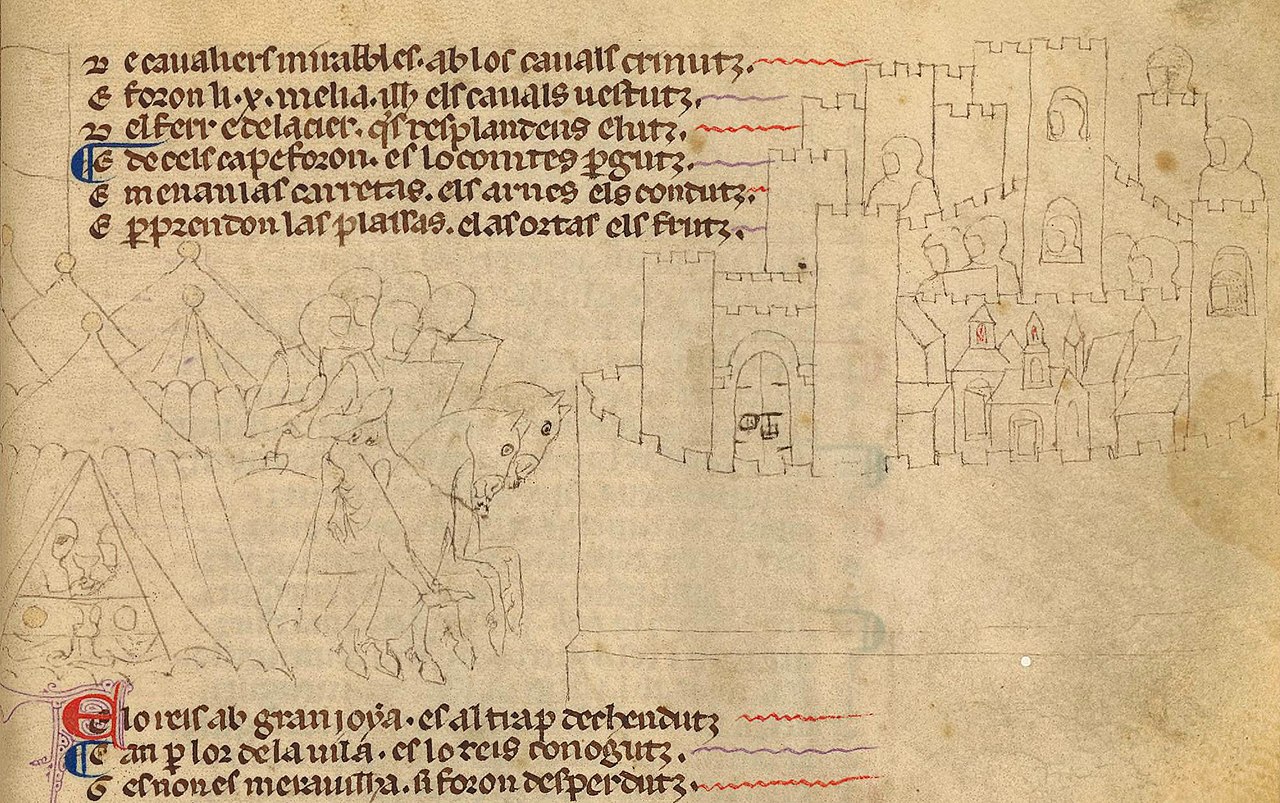 D e caualiers mirables. ab los cauals crinutz.
E foron li .x. melia. els cauals uestutz.
D el ferr e del acier. qˢ resplandens e lutz.
E de cels cap e foron. es lo comtes ꝑgutz.
E menan las carretas. els arnes els condutz.
E ꝑprendon las plassas. e las ortas els frutz.
E lo reis ab gran ioya. es al trap dechendutz
C an ꝑ lor de la uila. es lo reis conogutz.
G es non es merauilha. si foron desperdutz.